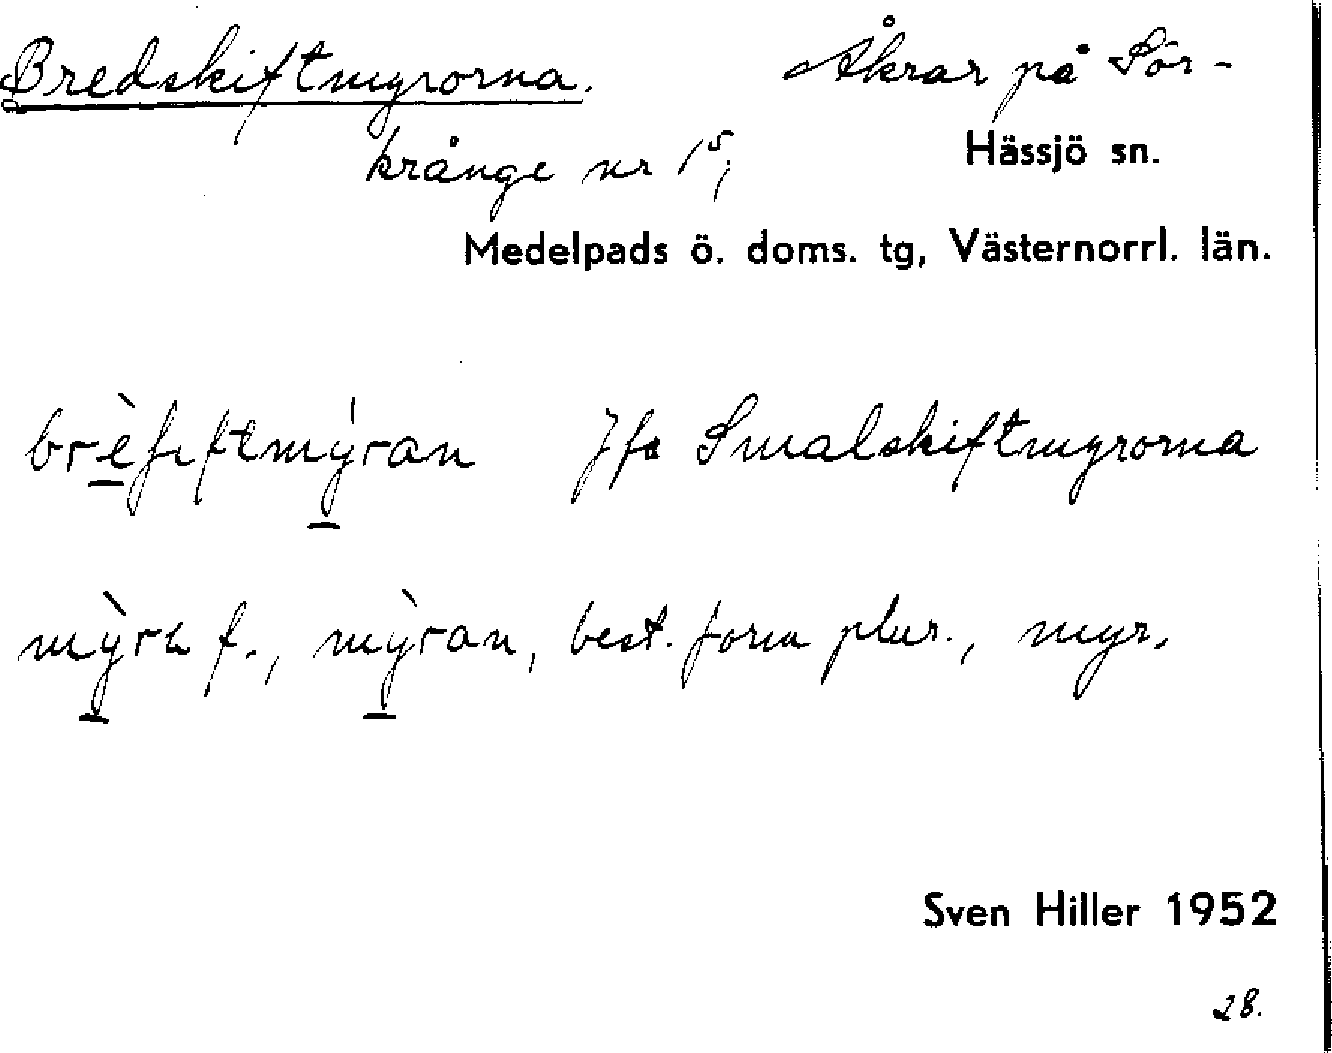 Bredskiftmyrorna. Åkrar på Sör-
krånge nr 1⁵, Hässjö sn.
Medelpads ö. doms. tg, Västernorrl. län.
brèʃıftmýran Jfr Smalskiftmyrorna
mỳrɩ f., mỳran, best. form plur., myr.
Sven Hiller 1952
28.